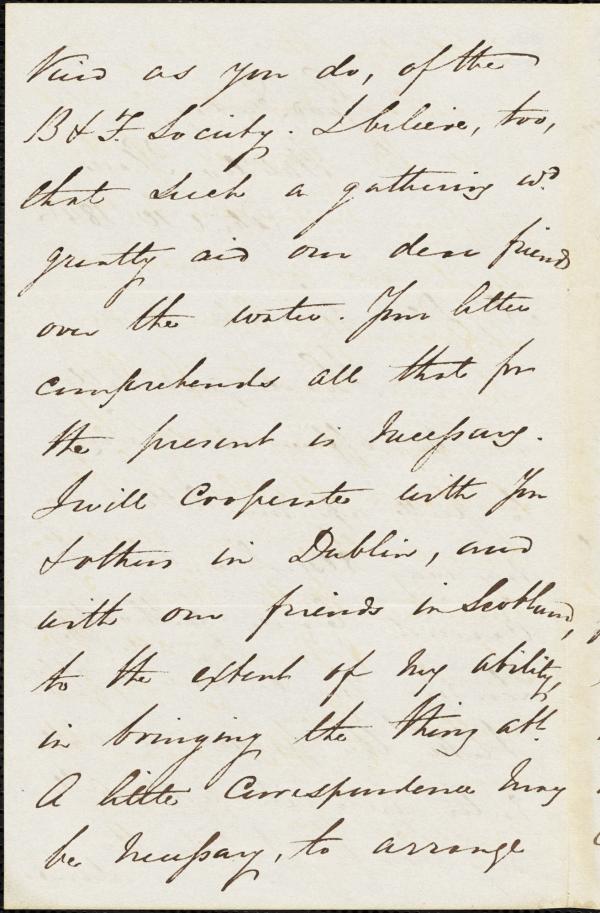 view as you do, of the
B & F. Society. I believe, too,
that such a gathering wd.
greatly aid our dear friends
over the water. Your letter
comprehends all that for
the present is necessary.
I will cooperate with you
& others in Dublin, and
with our friends in Scotland,
to the extent of my ability,
in bringing the thing abt.
A little correspondence may
be necessary, to arrange